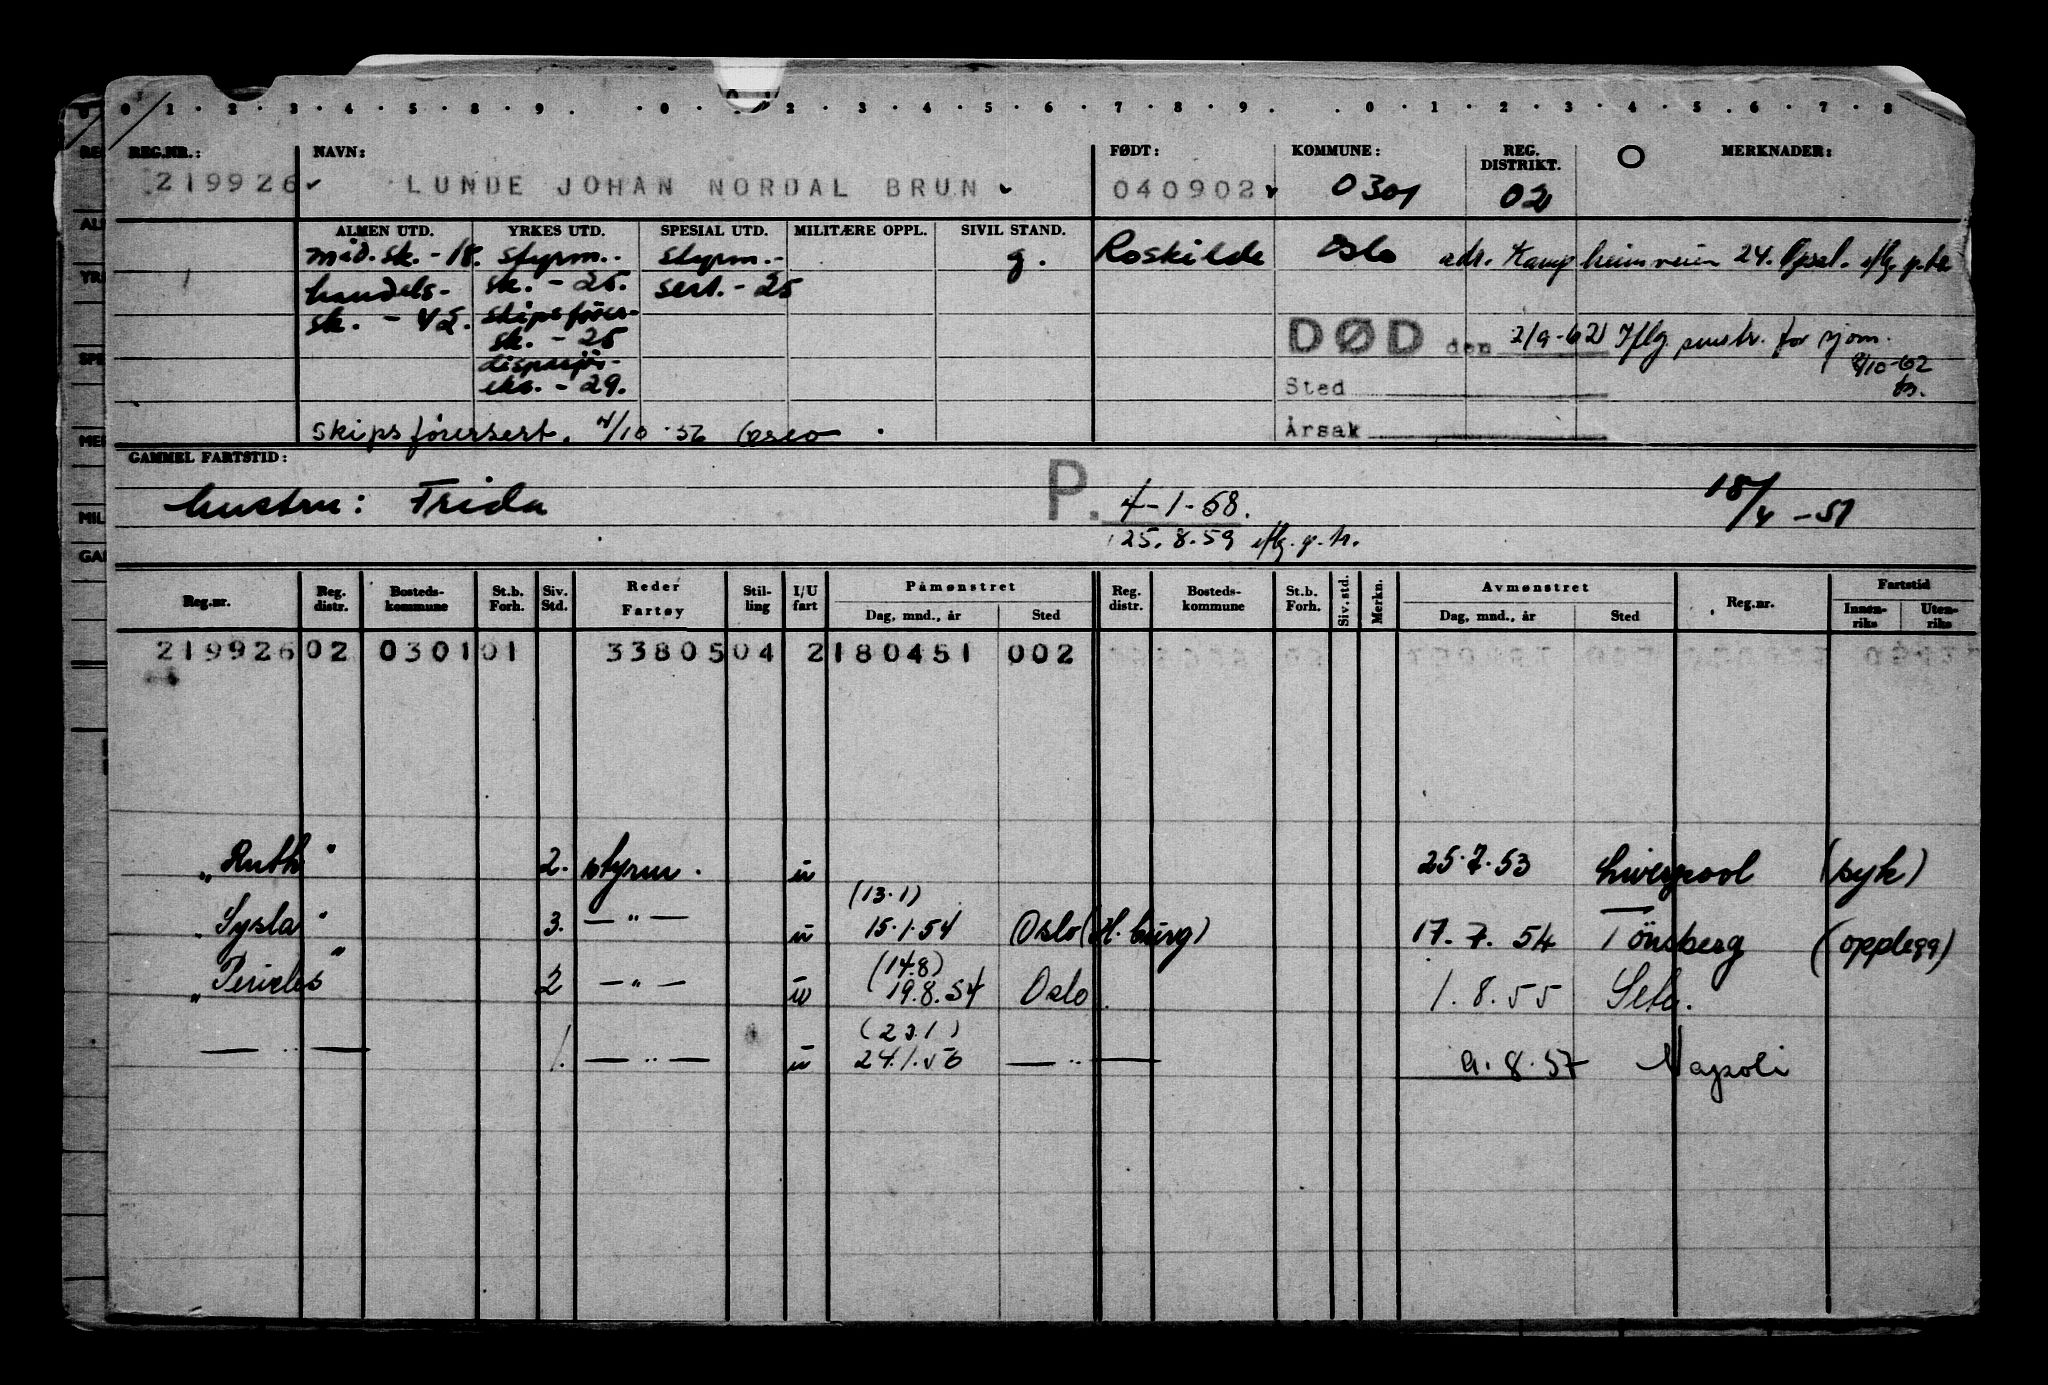 0 · 1 · 2 · 3 · 4 · 5 · 8 · 9 . · 0 · 2 · 3 · 4 · 5 · 6 · 7 · 8 · 9 . . 0 · 1 · 2 · 3 · 4 · 5 · 6 · 7 · 8
REG.NR.: NAVN: FØDT: KOMMUNE: REG. DISTRIKT. O MERKNADER:
219926 LUNDE JOHAN NORDAL BRUN 040902 0301 02
ALMEN UTD. YRKES UTD. SPESIAL UTD. MILITÆRE OPPL. SIVIL STAND.
mid.sk. - 18. styrm.- styrm.- g. Roskilde Oslo adr. 24.
handels- sk. - 25. sert. - 25
sk. - 42. skipsfører-
sk. - 25
dispasjør-
eks. - 29.
DØD den 2/9-62 Iflg. for sjøm.
8/10-62
Sted
Årsak
skipsførersert. 4/10 56 Oslo
GAMMEL FARTSTID:
hustru: Frida P. 4-1-58. 18/4 - 51
25.8.59 iflg. p.tr.
Reg.nr. Reg. distr. Bosteds-kommune St.b. Forh. Siv. Std. Reder Fartøy Stil-ling I/U fart Påmønstret Reg. distr. Bosteds-kommune St.b. Forh. Siv. std. Merkn. Avmønstret Reg.nr. Fartstid
Dag, mnd., år Sted Dag, mnd., år Sted Innen-riks Uten-riks
219926 02 0301 01 33805 04 2 180451 002
"Ruth" 2. styrm. u 25.7.53 Liverpool (syk)
(13.1)
"Sysla" 3. — " — u 15.1.54 Oslo (H.burg) 17.7.54 Tönsberg (opplegg)
(14.8)
"Pericles" 2 — " — u 19.8.54 Oslo 1.8.55
(23.1)
— " — 1. — " — u 24.1.56 — " — 9.8.57 Napoli